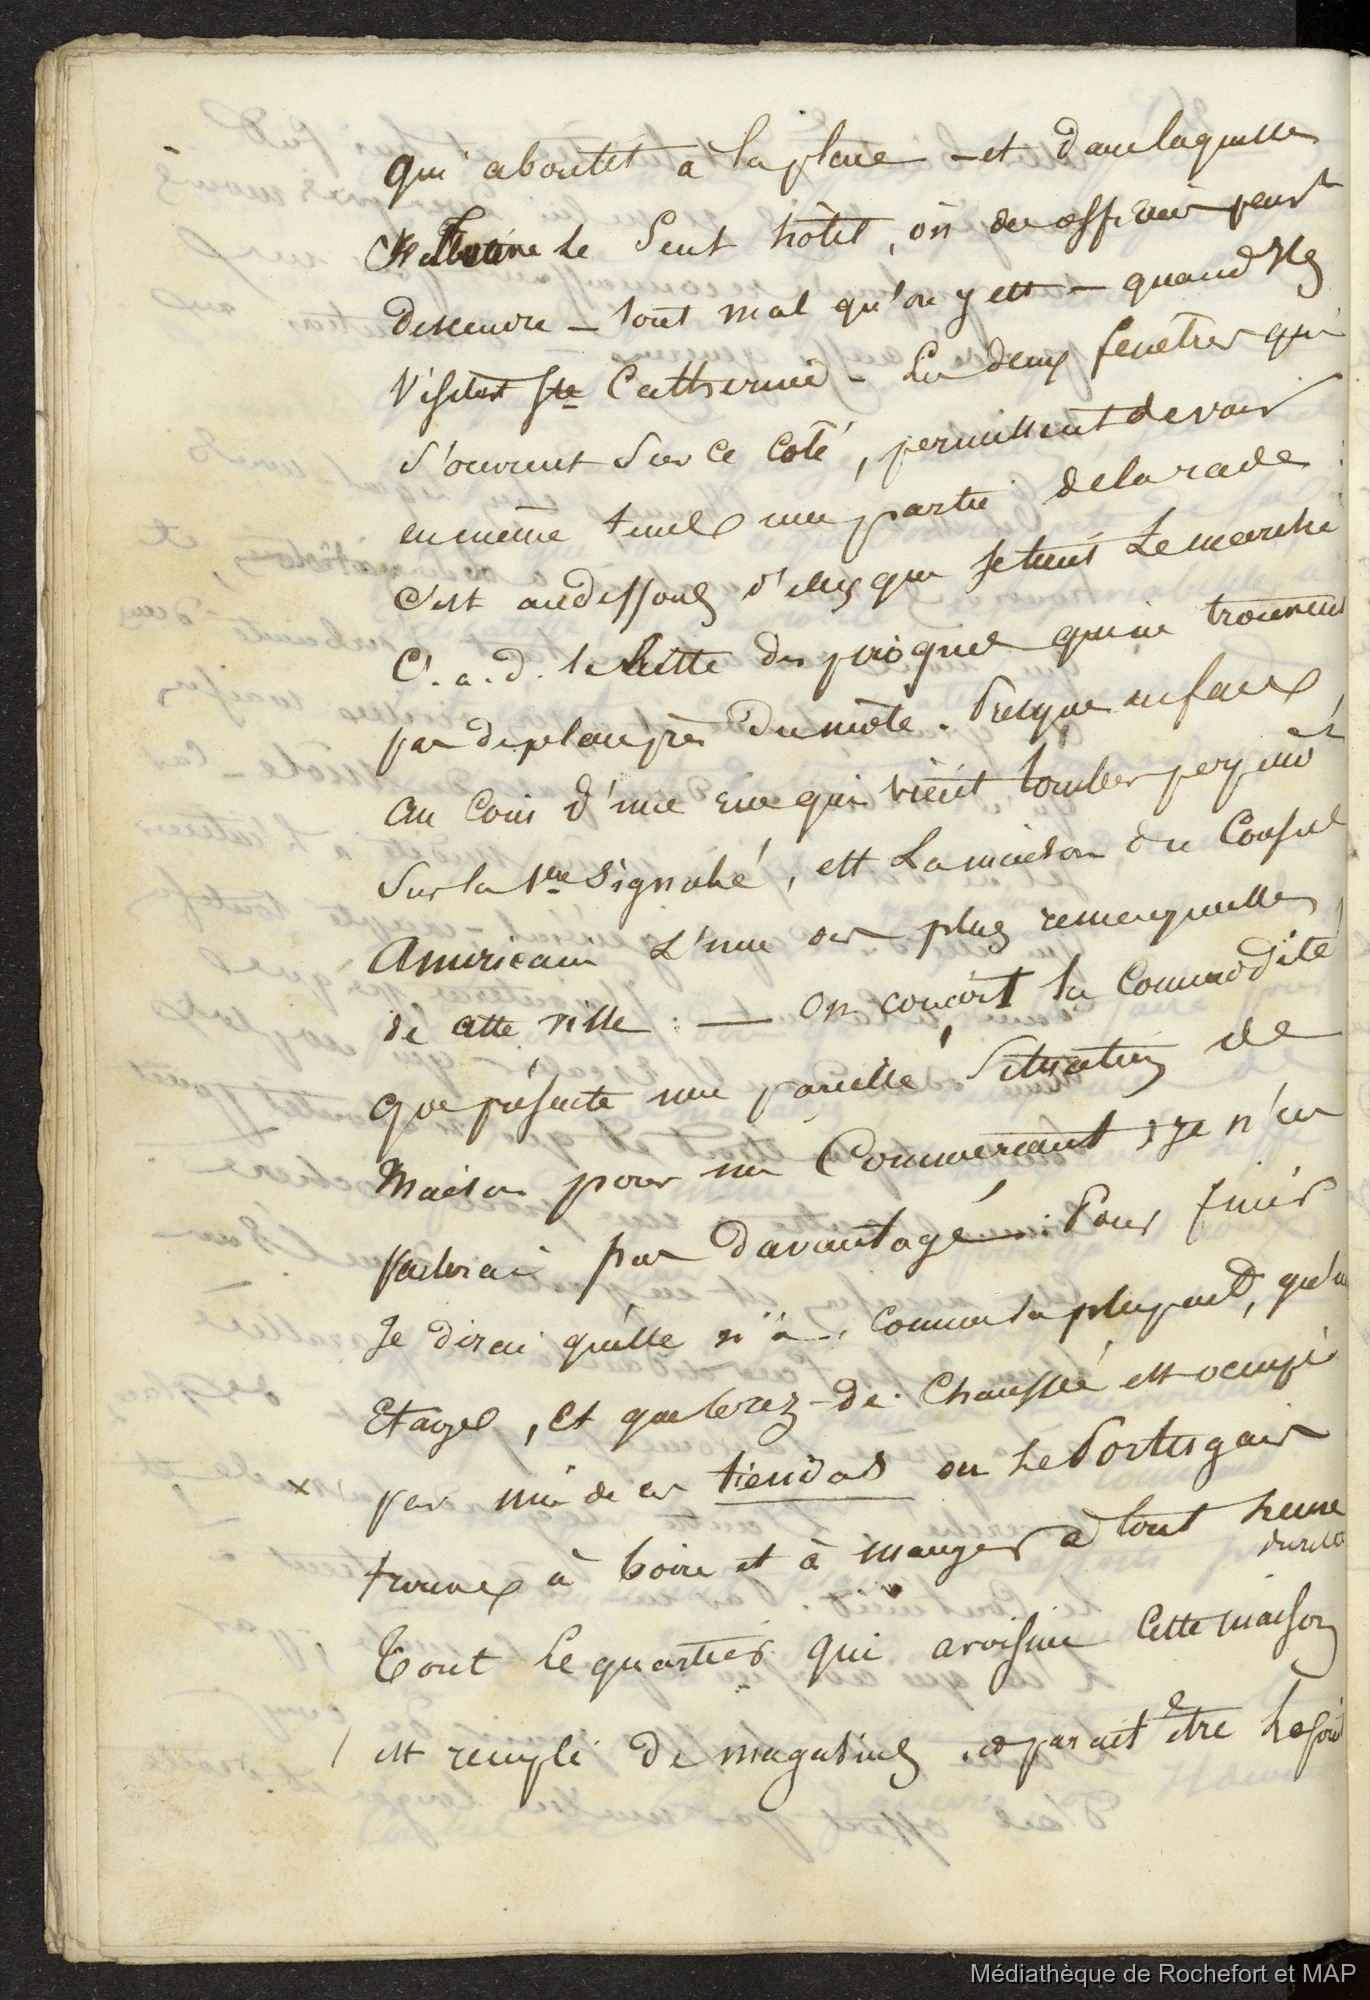 qui aboutit à la place - et dans laquelle
se trouve le seul hôtel, où des officiers peuvt
descendre - tout mal qu'on y est - quand ils
visitent Ste Catherine - Les deux fenêtres qui
s'ouvrent sur ce coté, permettent de voir
en même temps une partie de la rade
C'est au dessous d'elles que se tient Le marché
C. a. d. la des pirogues qui ne trouvent
pas de place près du môle. Presque en face
au coin d'une rue qui vient tomber
sur la 1ere signalé, est La maison du Consul
Americain L'une des plus remarquables
de cette ville. — On conçoit la Commodité
que présente une pareille situation de
Maison pour un Commerçant, je n'en
parlerai pas davantage. Pour finir
Je dirai qu'elle n'a, comme la plupart, qu'un
Etage, et que le rez-de-Chaussée est occupé
x par une de ces tiendas ou le Portugais
trouve à boire et à manger à tout heure
Tout le quartier qui avoisine Cette maison
/ est rempli de magasins, et parait être le
Médiathèque de Rochefort et MAP